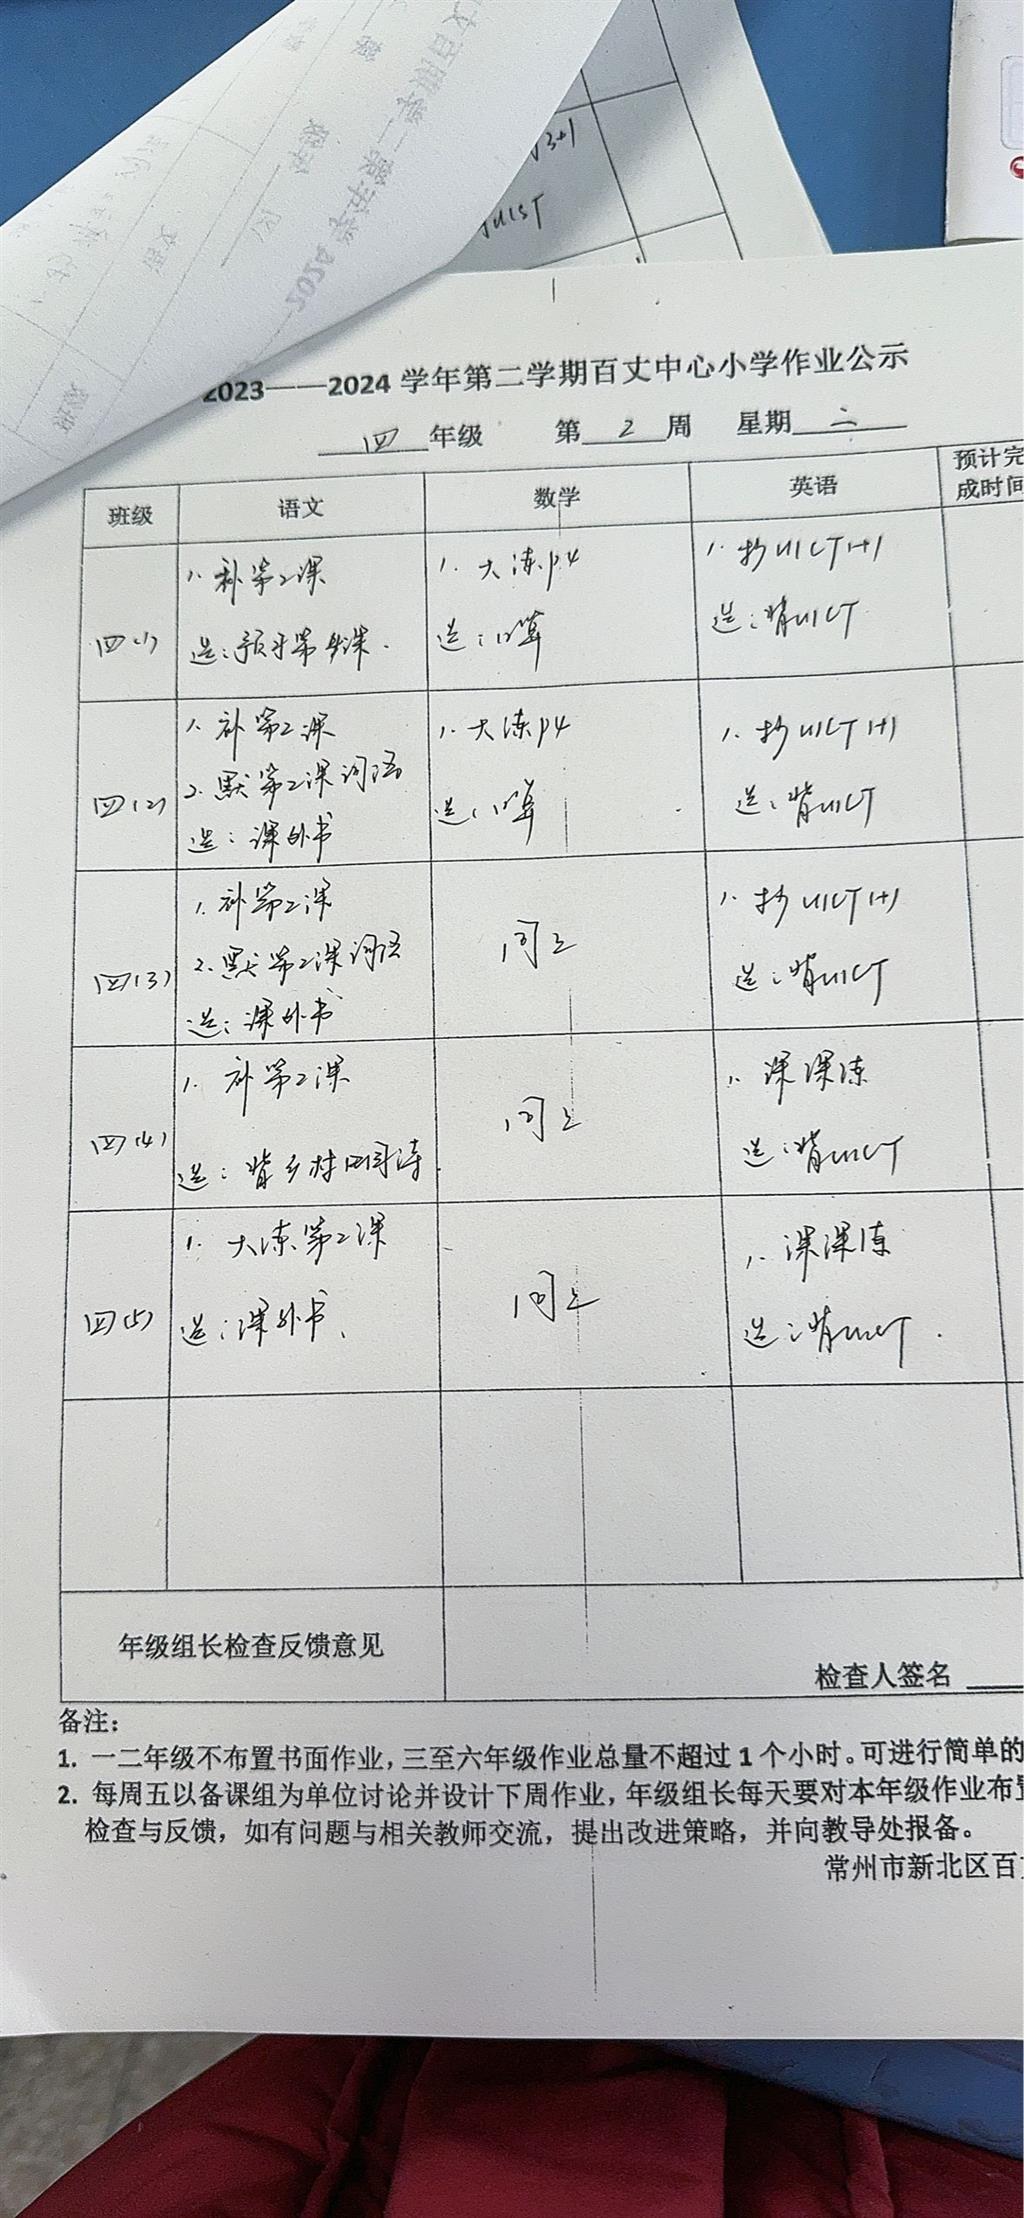 2023——2024 学年第二学期百丈中心小学作业公示
四 年级 第 2 周 星期 二
班级 语文 数学 英语 预计完
成时间
四(1)
1. 补第2课
选:预习第4课.
1. 大练P4
选:口算
1. 抄U1CT 1+1
选:背U1CT
四(2)
1. 补第2课
2. 默第2课词语
选:课外书
1. 大练P4
选:口算
1. 抄U1CT 1+1
选:背U1CT
四(3)
1. 补第2课
2. 默第2课词语
选:课外书
同上
1. 抄U1CT 1+1
选:背U1CT
四(4)
1. 补第2课
选:背乡村四月
同上
1. 课课练
选:背U1CT
四(5)
1. 大练第2课
选:课外书、
同上
1. 课课练
选:背U1CT.
年级组长检查反馈意见
检查人签名
备注:
1. 一二年级不布置书面作业,三至六年级作业总量不超过 1 个小时。可进行简单的
2. 每周五以备课组为单位讨论并设计下周作业,年级组长每天要对本年级作业布置
检查与反馈,如有问题与相关教师交流,提出改进策略,并向教导处报备。
常州市新北区百